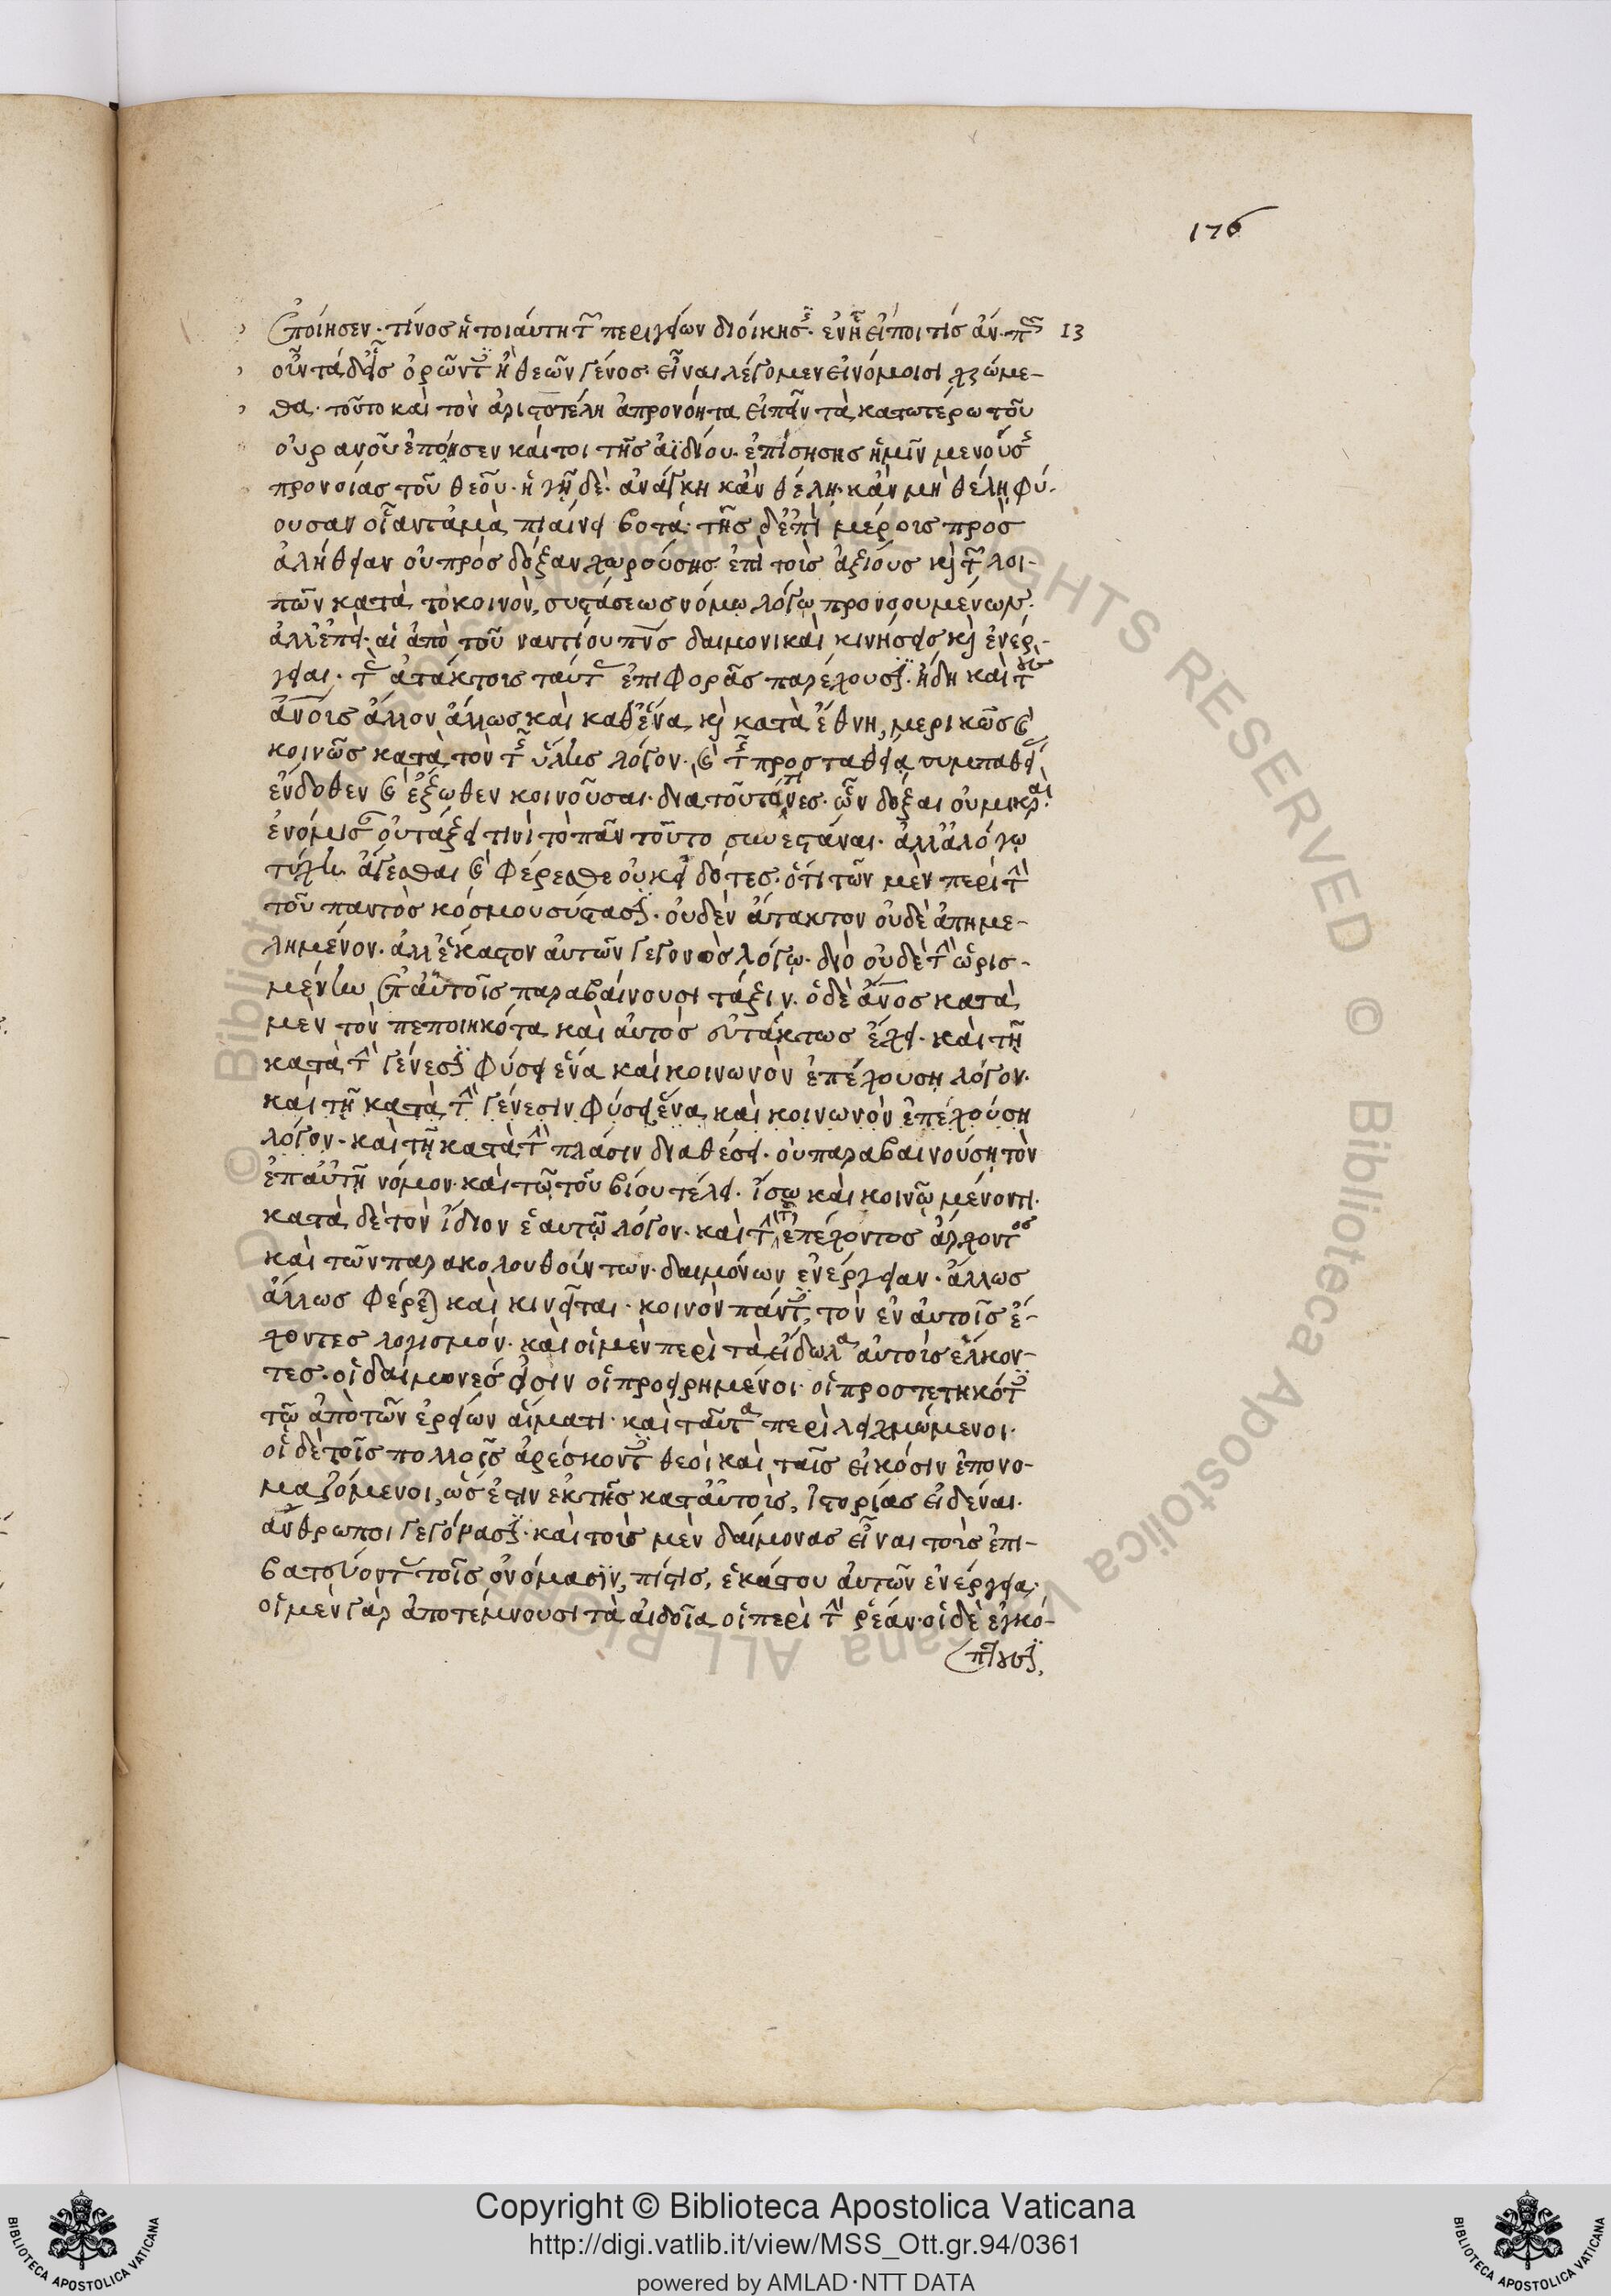 176
ἐποίησεν· τίνος ἡ τοιαύτη τῶν περιγείων διοίκησις· ἐνῆ εἴποι τίς ἄν· πῶς 13
οὖν τάδ' εἰσορῶντες ἢ θεῶν γένος· εἶναι λέγομεν εἰ νόμοισι χρώμε-
θα· τοῦτο καὶ τὸν ἀριστοτέλη ἀπρονόητα εἰπεῖν τὰ κατωτέρω τοῦ
οὐρανοῦ ἐποίησεν καίτοι τῆς ἀϊδίου ἐπίσησης ἡμῖν μενούσης
προνοίας τοῦ θεοῦ· ἡ γῆ δὲ· ἀνάγκη κἂν θέλη· κἂν μὴ θέλη φύ-
ουσα οἷαν τἀμὰ πιαίνει βοτά· τῆς δ' ἐπὶ μέροις πρὸς
ἀλήθειαν οὐ πρὸς δόξαν χωρούσης ἐπὶ τοὶς ἀξίους καὶ τῶν λοι-
πῶν κατὰ τὸ κοινὸν, συστάσεως νόμω λόγω προνοουμένων·
ἀλλ' ἐπεὶ· αἱ ἀπὸ τοῦ ναντίου πνς δαιμονικαὶ κινήσεις καὶ ἐνέρ-
γειαι· τὰς ἀτάκτοις ταύτας ἐπιφορᾶς παρέχουσιν· ἤδη καὶ τοὺς
ἀνοις ἄλλον ἄλλως καὶ καθ' ἕνα καὶ κατὰ ἔθνη, μερικῶς καὶ
κοινῶς κατὰ τὸν τῆς ὕλης λόγον· καὶ τῆς προς τα θεῖα συμπαθεί
ἐνδοθεν καὶ ἐξωθεν κοινοῦσαι· δια τοῦτό τινες· ὧν δόξαι οὐ μικραὶ·
ἐνόμισαν οὐ τάξει τινὶ τὸ πᾶν τοῦτο συνεστάναι· ἀλλ' ἀλόγω
τύχη ἄγεσθαι καὶ φέρεσθε οὐκ εἰδότες· ὅτι τῶν μὲν περὶ τὴν
τοῦ παντὸς κόσμου σύστασιν· οὐδὲν ἄτακτον οὐδὲ ἀπημε-
λημένον· ἀλλ' ἕκαστον αὐτῶν γεγονὸς λόγω· διὸ οὐδὲ τὴν ὡρισ-
μένην ἐπ' αὐτοῖς παραβαίνουσι τάξιν· ὁ δὲ ἄνος κατὰ
μὲν τὸν πεποιηκότα καὶ αὐτὸς εὐτάκτως ἔχει· καὶ τῆ
κατὰ τὴν γένεσιν φύσει ἕνα καὶ κοινωνὸν ἐπέχουση λόγον·
καὶ τῆ κατὰ τὴν γένεσιν φύσει ἕνα καὶ κοινωνὸν ἐπέχούση
λόγον· καὶ τῆ κατὰ τὴν πλάσιν διαθέσει· οὐ παραβαινούση τὸν
ἐπ' αὐτῆ νόμον· καὶ τῶ τοῦ βίου τέλει· ἴσω καὶ κοινῶ μένοντι·
κατὰ δὲ τὸν ἴδιον ἑαυτῶ λόγον· καὶ τὴν τοῦ ἐπέχοντος ἄρχοντος
καὶ τῶν παρακολουθοίντων· δαιμόνων ἐνέργειαν· ἄλλως
ἄλλως φέρεται καὶ κινεῖται· κοινὸν πάντες, τὸν ἐν αὐτοῖς ἔ-
χοντες λογισμόν· καὶ οἱ μὲν περὶ τὰ εἴδωλα αὐτοὶς ἕλκον-
τες· οἱ δαίμονές εἰσιν οἱ προειρημένοι· οἱ προστετηκότες
τῶ ἀπὸ τῶν ἱερείων αἵματι· καὶ ταῦτα περιλειχμώμενοι·
οἱ δὲ τοῖς πολλοῖς ἀρέσκοντες θεοὶ καὶ ταῖς εἰκόσιν ἐπονο-
μαζόμενοι, ὡς ἔστιν ἐκ τῆς κατ' αὐτοὶς, ἱστορίας εἰδέναι·
ἄνθρωποι γεγόνασιν· καὶ τοὶς μὲν δαίμονας εἶναι τοὶς ἐπι-
βατεύοντας τοῖς ὀνόμασιν, πίστις, ἑκάστου αὐτῶν ἐνέργεια·
οἱ μὲν γὰρ ἀποτέμνουσι τὰ αἰδοῖα, οἱ περὶ τὴν ῥέαν· οἱ δὲ ἐγκό-
πτουσιν,
Copyright © Biblioteca Apostolica Vaticana
http://digi.vatlib.it/view/MSS_Ott.gr.94/0361
powered by AMLAD·NTT DATA
BIBLIOTECA APOSTOLICA VATICANA
BIBLIOTECA APOSTOLICA VATICANA